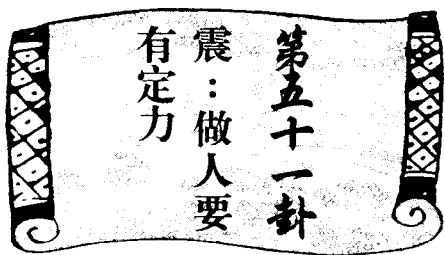 第五十一卦
震：做人要
有定力